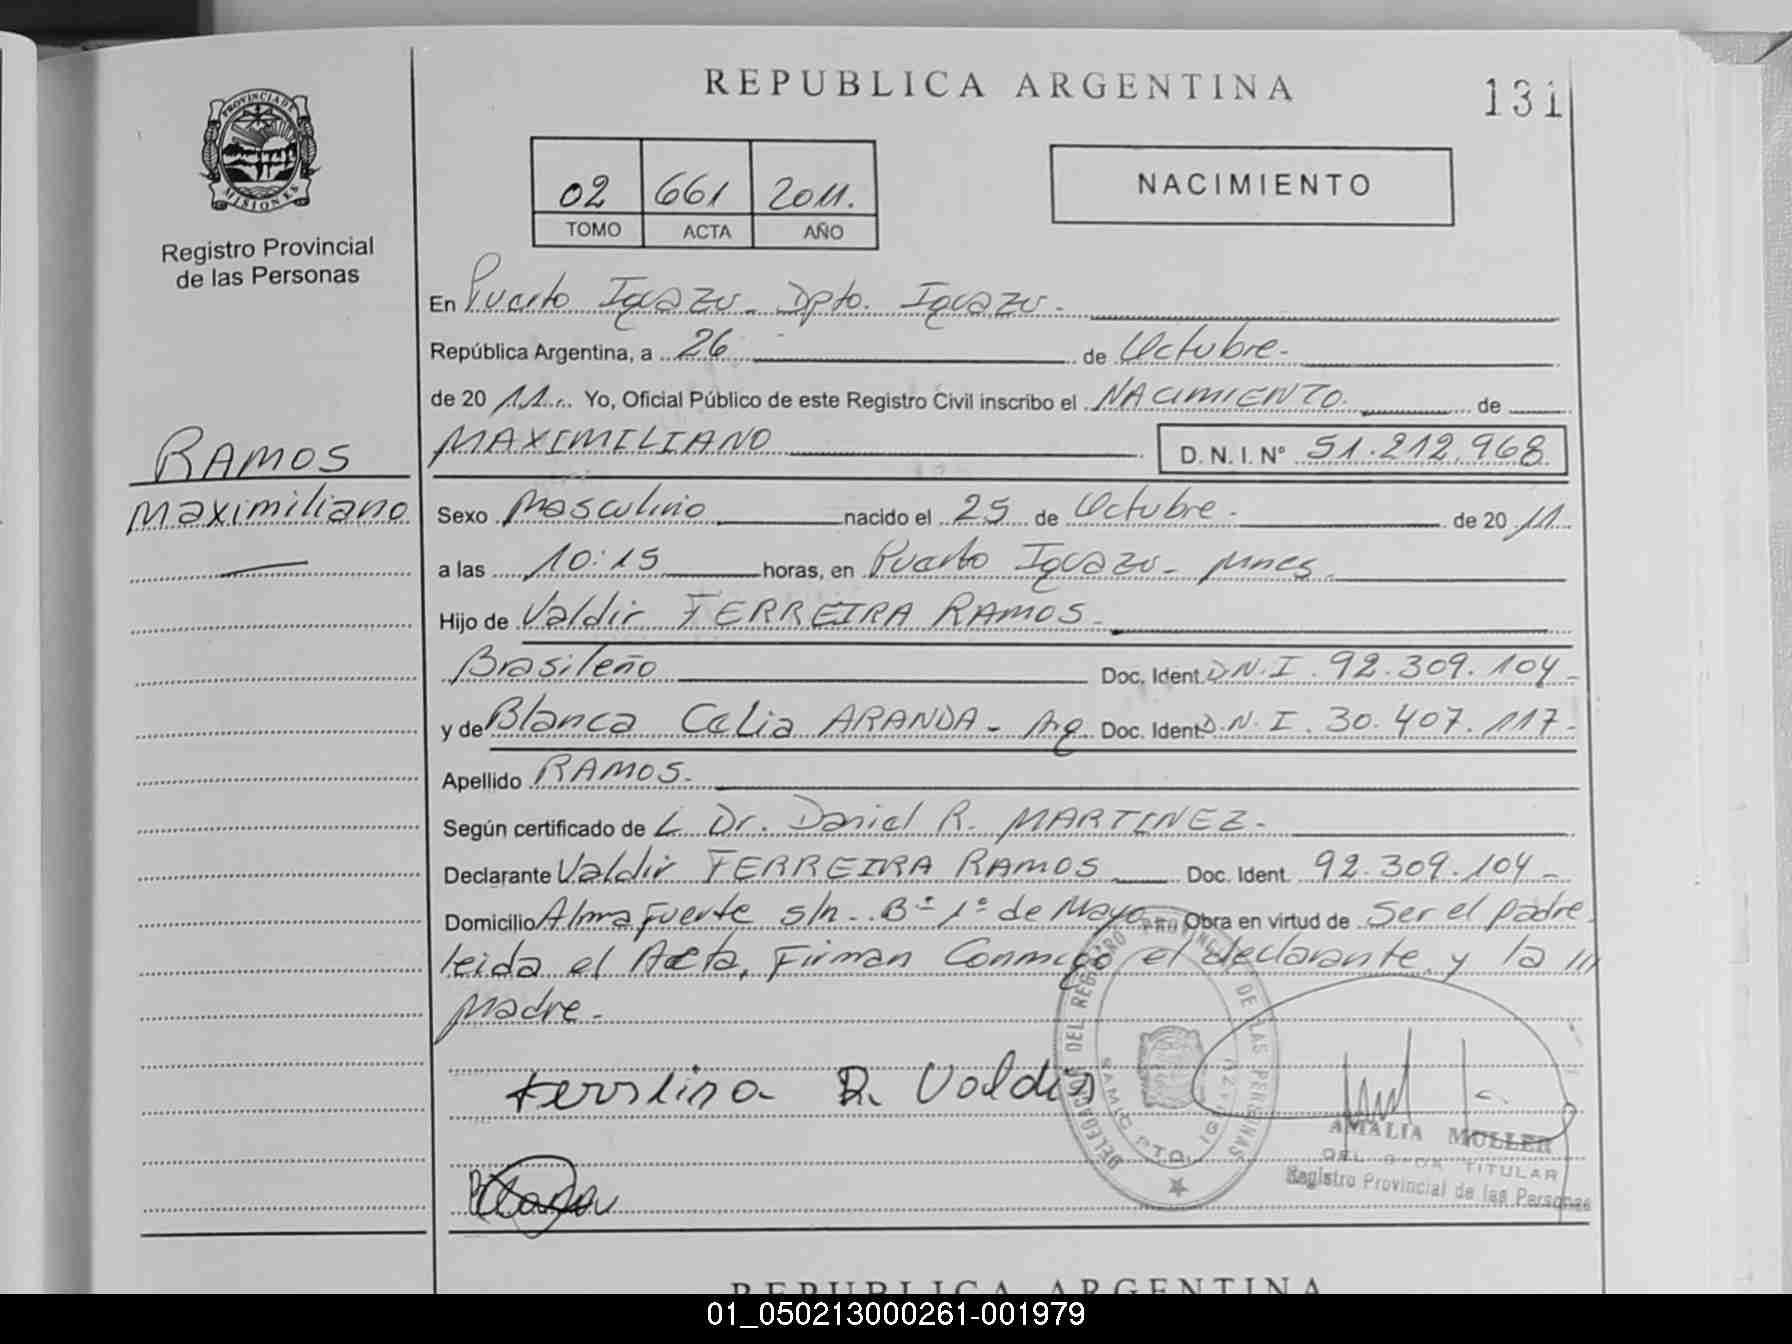 REPUBLICA ARGENTINA
131
PROVINCIA DE
MISIONES
Registro Provincial
de las Personas
02 661 2011.
TOMO ACTA AÑO
NACIMIENTO
En Puerto Iguazu - Dpto. Iguazu -
República Argentina, a 26 de Octubre -
de 20 11 Yo, Oficial Público de este Registro Civil inscribo el NACIMIENTO de
RAMOS
Maximiliano
MAXIMILIANO D. N. I. Nº 51.212.968
Sexo Masculino nacido el 25 de Octubre - de 20 11
a las 10:15 horas, en Puerto Iguazu - Mnes.
Hijo de Valdir FERREIRA RAMOS -
Brasileño Doc. Ident. D.N.I. 92.309.104 -
y de Blanca Celia ARANDA - Arg. Doc. Ident. D.N.I. 30.407.117 -
Apellido RAMOS.
Según certificado de L Dr. Daniel R. MARTINEZ -
Declarante Valdir FERREIRA RAMOS Doc. Ident. 92.309.104 -
Domicilio Alma Fuerte s/n - Bº 1º de Mayo - Obra en virtud de Ser el padre.
leida el Acta, Firman Conmigo el declarante y la ///
Madre -
R. Valdir
AMALIA MULLER
TITULAR
Registro Provincial de las Personas
REPUBLICA ARGENTINA
01_050213000261-001979